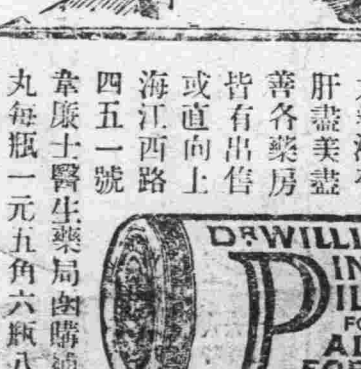 肝盡美盡
善各藥房
皆有出售
或直向上
海江西路
四五一號
韋廉士醫生藥局函購
丸每瓶一元五角六瓶八
DR WILLI
PIN
PIL
FO
AL
FOR